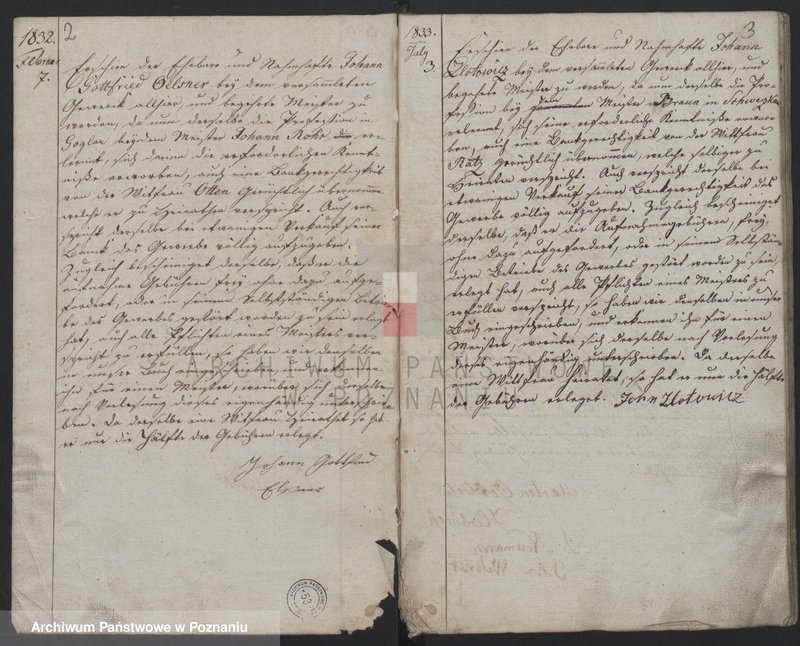 1832.
Februar
7.
2
Erschien der Ehrbare und Nahmhafte Johann
Gottfried Ellsner bey dem versammleten
Gewerck allhier, und begehrte Meister zu
werden, da nun derselbe die Profession in
Goglau bey dem Meister Johann Rohr erlernt,
sich darin die erforderlichen Kennt-
niße erworben, auch eine Bankgerechtigkeit
von der Witfrau Otten Gerichtlich übernommen
welche er zu Heirathen verspricht. Auch ver-
spricht derselbe bei etwanigen Verkauf seiner
Bank das Gewerbe völlig aufzugeben.
Zugleich bescheiniget derselbe, daß er die
Aufnahme Gebühren freÿ ohne dazu aufge-
fordert, oder in seinem Selbstständigen Betrie-
be des Gewerbes gestört worden zu sein erlegt
hat, auch alle Pflichten eines Meisters ver-
spricht zu erfüllen, so haben wir denselben
in unser Buch eingeschrieben und erkennen
ihn für einen Meister, worüber sich derselbe
nach Vorlesung dieses eigenhändig unterschrie-
ben. Da derselbe eine Witfrau Heirathet so hat
er nur die Hälfte der Gebühren erlegt.
Johann Gottfried
Elsner
1833.
July
3.
3
Erschien der Ehrbare und Nahmhafte Johann
Zlotowicz bey dem versammleten Gewerck allhier, und
begehrte Meister zu werden, da nun derselbe die Pro-
fession bey dem Meister Braun in Schwezkau
erlernt, sich seine erforderliche Kenntniße erwor-
ben, auch eine Bankgerechtigkeit von der Wittfrau
Ratz Gerichtlich übernommen, welche selbiger zu
Heirathen verspricht. Auch verspricht derselbe bei
etwanigen Verkauf seiner Bankgerechtigkeit das
Gewerbe völlig aufzugeben. Zugleich bescheiniget
derselbe, daß er die Aufnahmegebühren, freÿ,
ohne dazu aufgefordert, oder in seinem Selbststän-
digen Betriebe des Gewerbes gestört worden zu sein
erlegt hat, auch alle Pflichten eines Meisters zu
erfüllen verspricht, so haben wir denselben in unser
Buch eingeschrieben, und erkennen ihn für einen
Meister, worüber sich derselbe nach Vorlesung
dieses eigenhändig unterschrieben. Da derselbe
eine Wittfrau heirathet, so hat er nur die Hälfte
der Gebühren erlegt. John Zlotowicz
ARCHIWUM PAŃSTWOWE
W POZNANIU
53
Archiwum Państwowe w Poznaniu